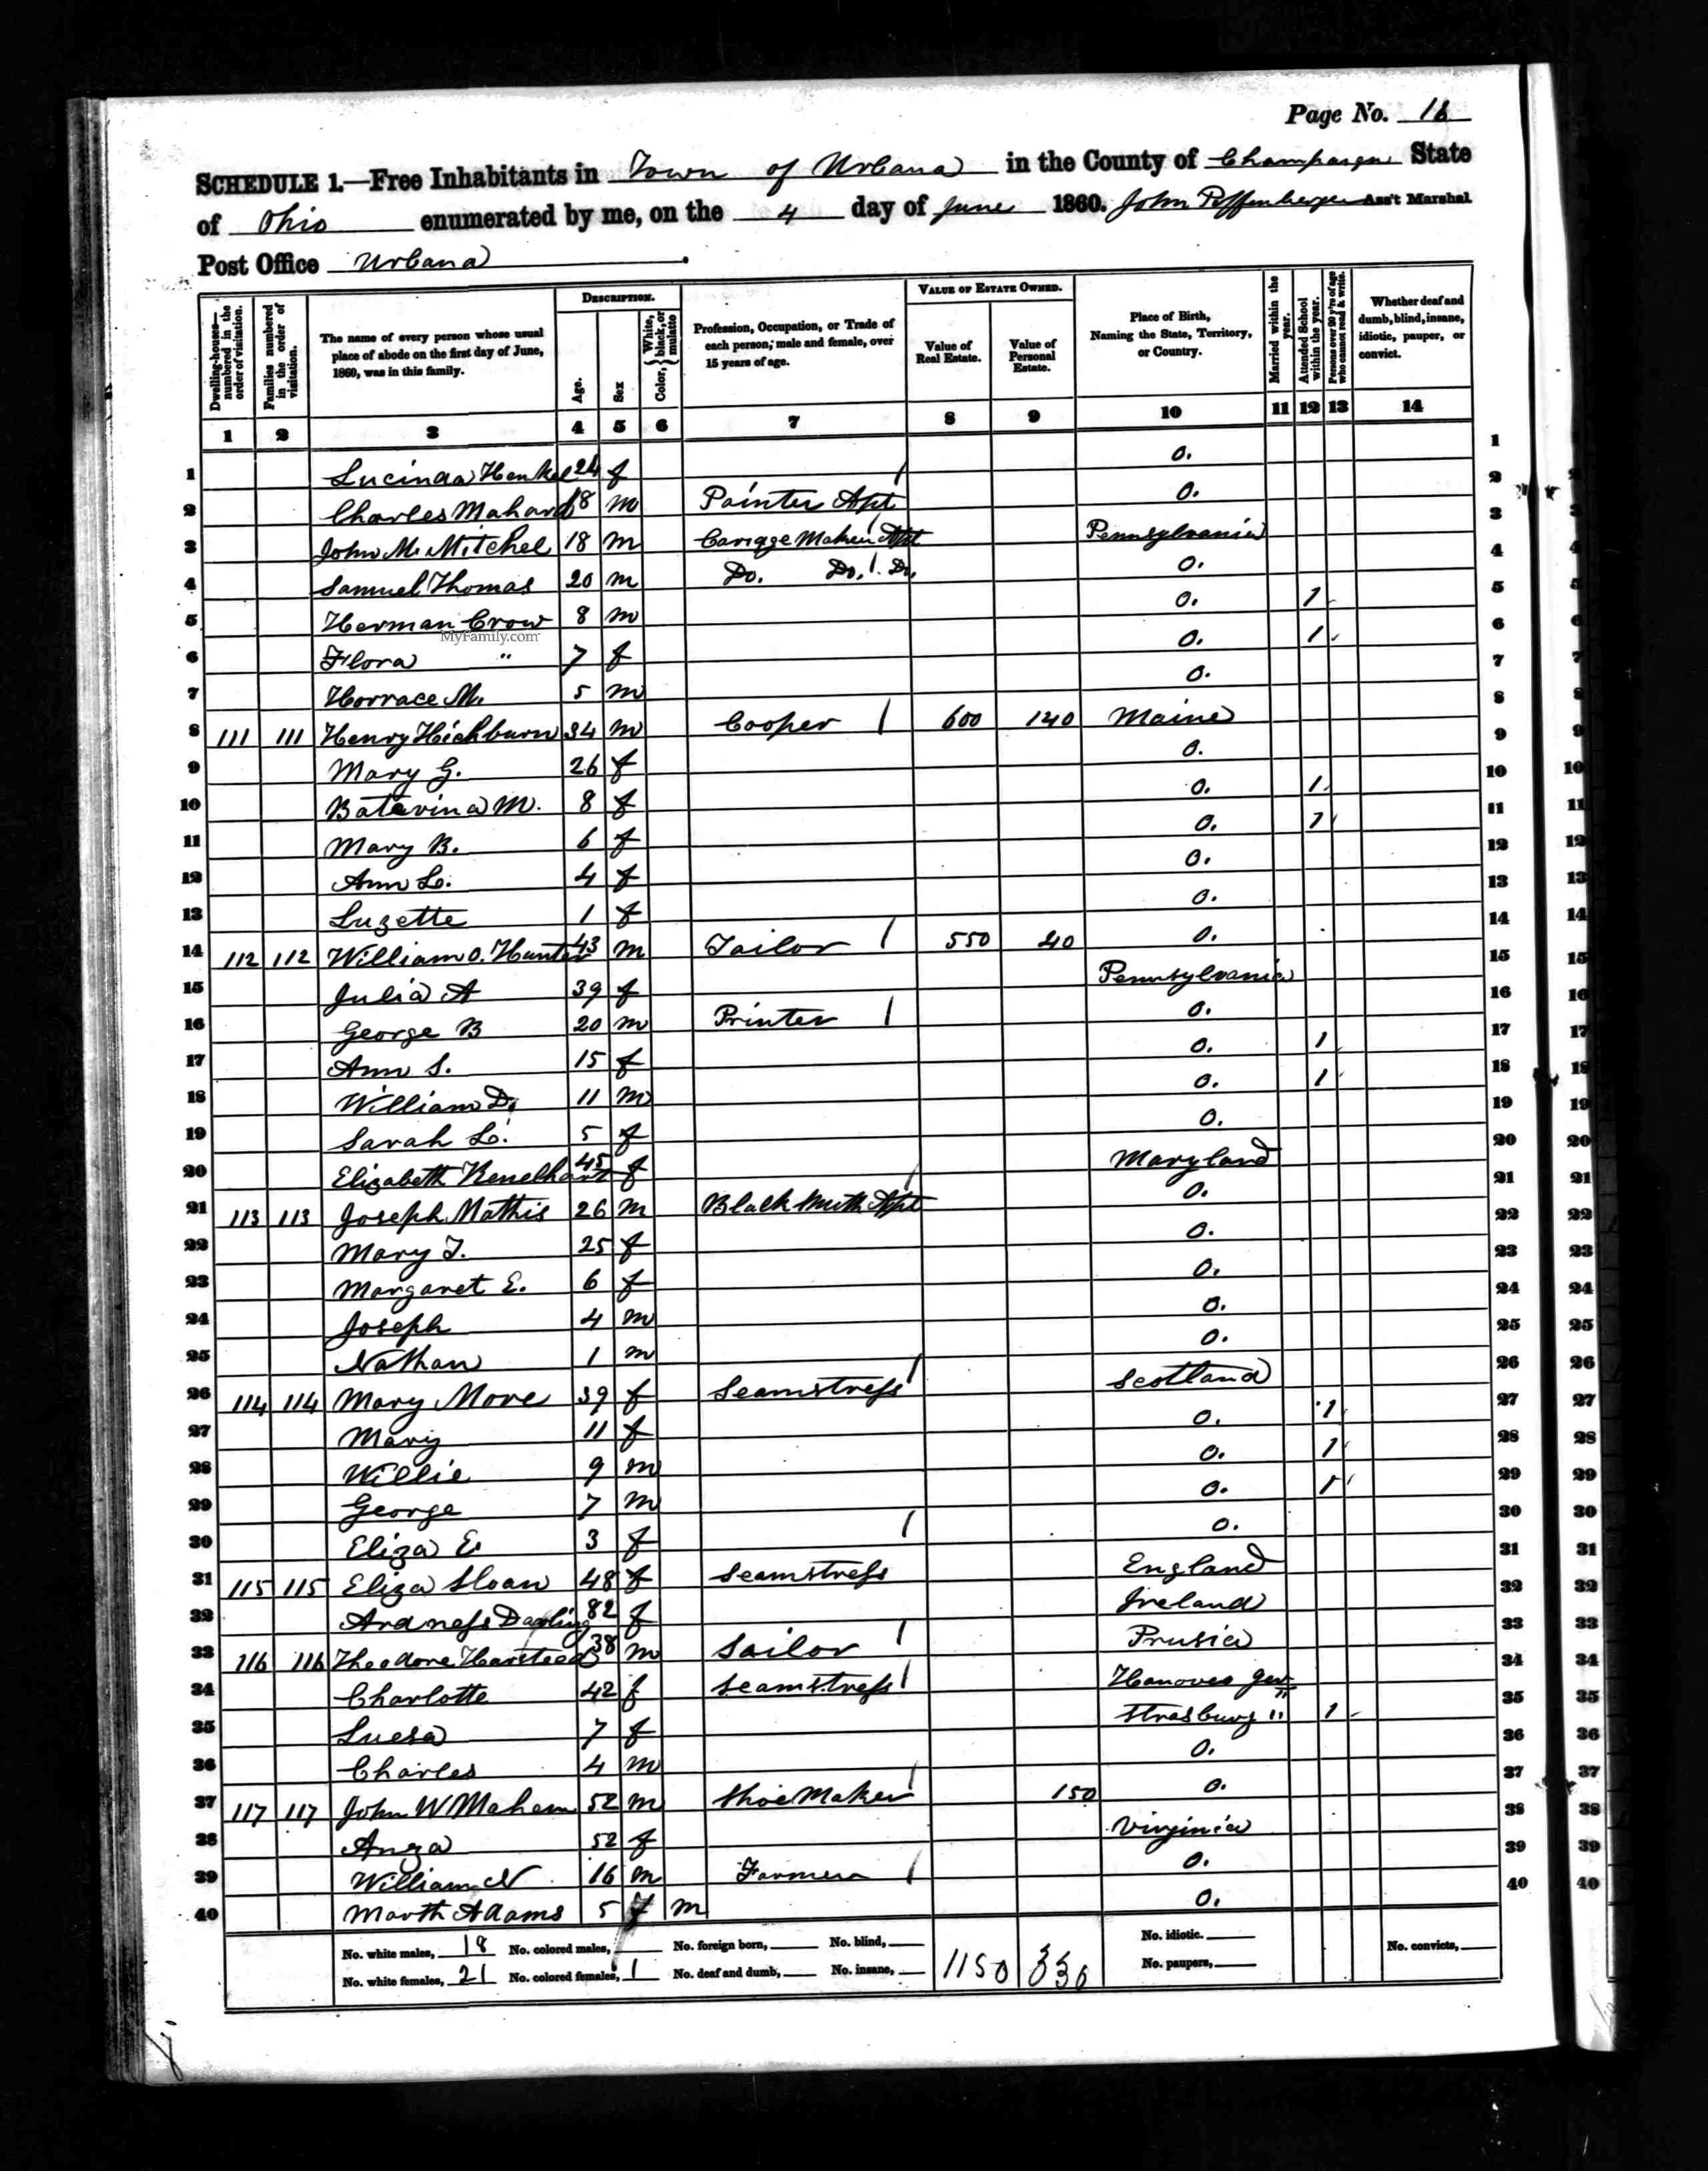 Page No. 16
SCHEDULE 1.—Free Inhabitants in Town of Urbana in the County of Champaign State
of Ohio enumerated by me, on the 4 day of June 1860. John Poffenberger Ass't Marshal
Post Office Urbana.
Dwelling-houses—numbered in the order of visitation.
Families numbered in the order of visitation.
The name of every person whose usual place of abode on the first day of June, 1860, was in this family.
DESCRIPTION.
Age.
Sex
Color, White, black, or mulatto
Profession, Occupation, or Trade of each person, male and female, over 15 years of age.
VALUE OF ESTATE OWNED.
Value of Real Estate.
Value of Personal Estate.
Place of Birth, Naming the State, Territory, or Country.
Married within the year.
Attended School within the year.
Persons over 20 y'rs of age who cannot read & write.
Whether deaf and dumb, blind, insane, idiotic, pauper, or convict.
1 2 3 4 5 6 7 8 9 10 11 12 13 14
1 Lucinda Henkel 24 f / O. 1
2 Charles Mahard 18 m Painter Apt O. 2
3 John M. Mitchel 18 m Cariage Maker Apt Pennsylvania 3
4 Samuel Thomas 20 m Do. Do. Do. O. 4
5 Herman Crow 8 m O. 1 5
MyFamily.com
6 Flora " 7 f O. 1 6
7 Horrace M. 5 m O. 7
8 111 111 Henry Hichburn 34 m Cooper / 600 140 Maine 8
9 Mary G. 26 f O. 9
10 Batavina M. 8 f O. 1 10
11 Mary B. 6 f O. 1 11
12 Ann L. 4 f O. 12
13 Luzette 1 f O. 13
14 112 112 William O. Hunter 43 m Tailor / 550 40 O. 14
15 Julia A 39 f Pennsylvania 15
16 George B 20 m Printer / O. 16
17 Ann S. 15 f O. 1 17
18 William D. 11 m O. 1 18
19 Sarah L. 5 f O. 19
20 Elizabeth 45 f Maryland 20
21 113 113 Joseph Mathis 26 m Blacksmith Apt O. 21
22 Mary J. 25 f O. 22
23 Margaret E. 6 f O. 23
24 Joseph 4 m O. 24
25 Nathan 1 m O. 25
26 114 114 Mary More 39 f Seamstress / Scotland 26
27 Mary 11 f O. 1 27
28 Willie 9 m O. 1 28
29 George 7 m O. 1 29
30 Eliza E. 3 f / O. 30
31 115 115 Eliza Sloan 48 f Seamstress England 31
32 Ardness 82 f Ireland 32
33 116 116 Theodore Harsteed 38 m Sailor / Prusia 33
34 Charlotte 42 f Seamstress / Hanover Ger 34
35 Luesa 7 f Strasburg " 1 35
36 Charles 4 m O. 36
37 117 117 John W Mahem 52 m Shoe Maker / 150 O. 37
38 Anza 52 f Virginia 38
39 William N 16 m Farmer / O. 39
40 Marth Adams 5 f m O. 40
No. white males, 18 No. colored males, No. foreign born, No. blind, No. idiotic.
No. white females, 21 No. colored females, 1 No. deaf and dumb, No. insane, 1150 330 No. paupers, No. convicts,